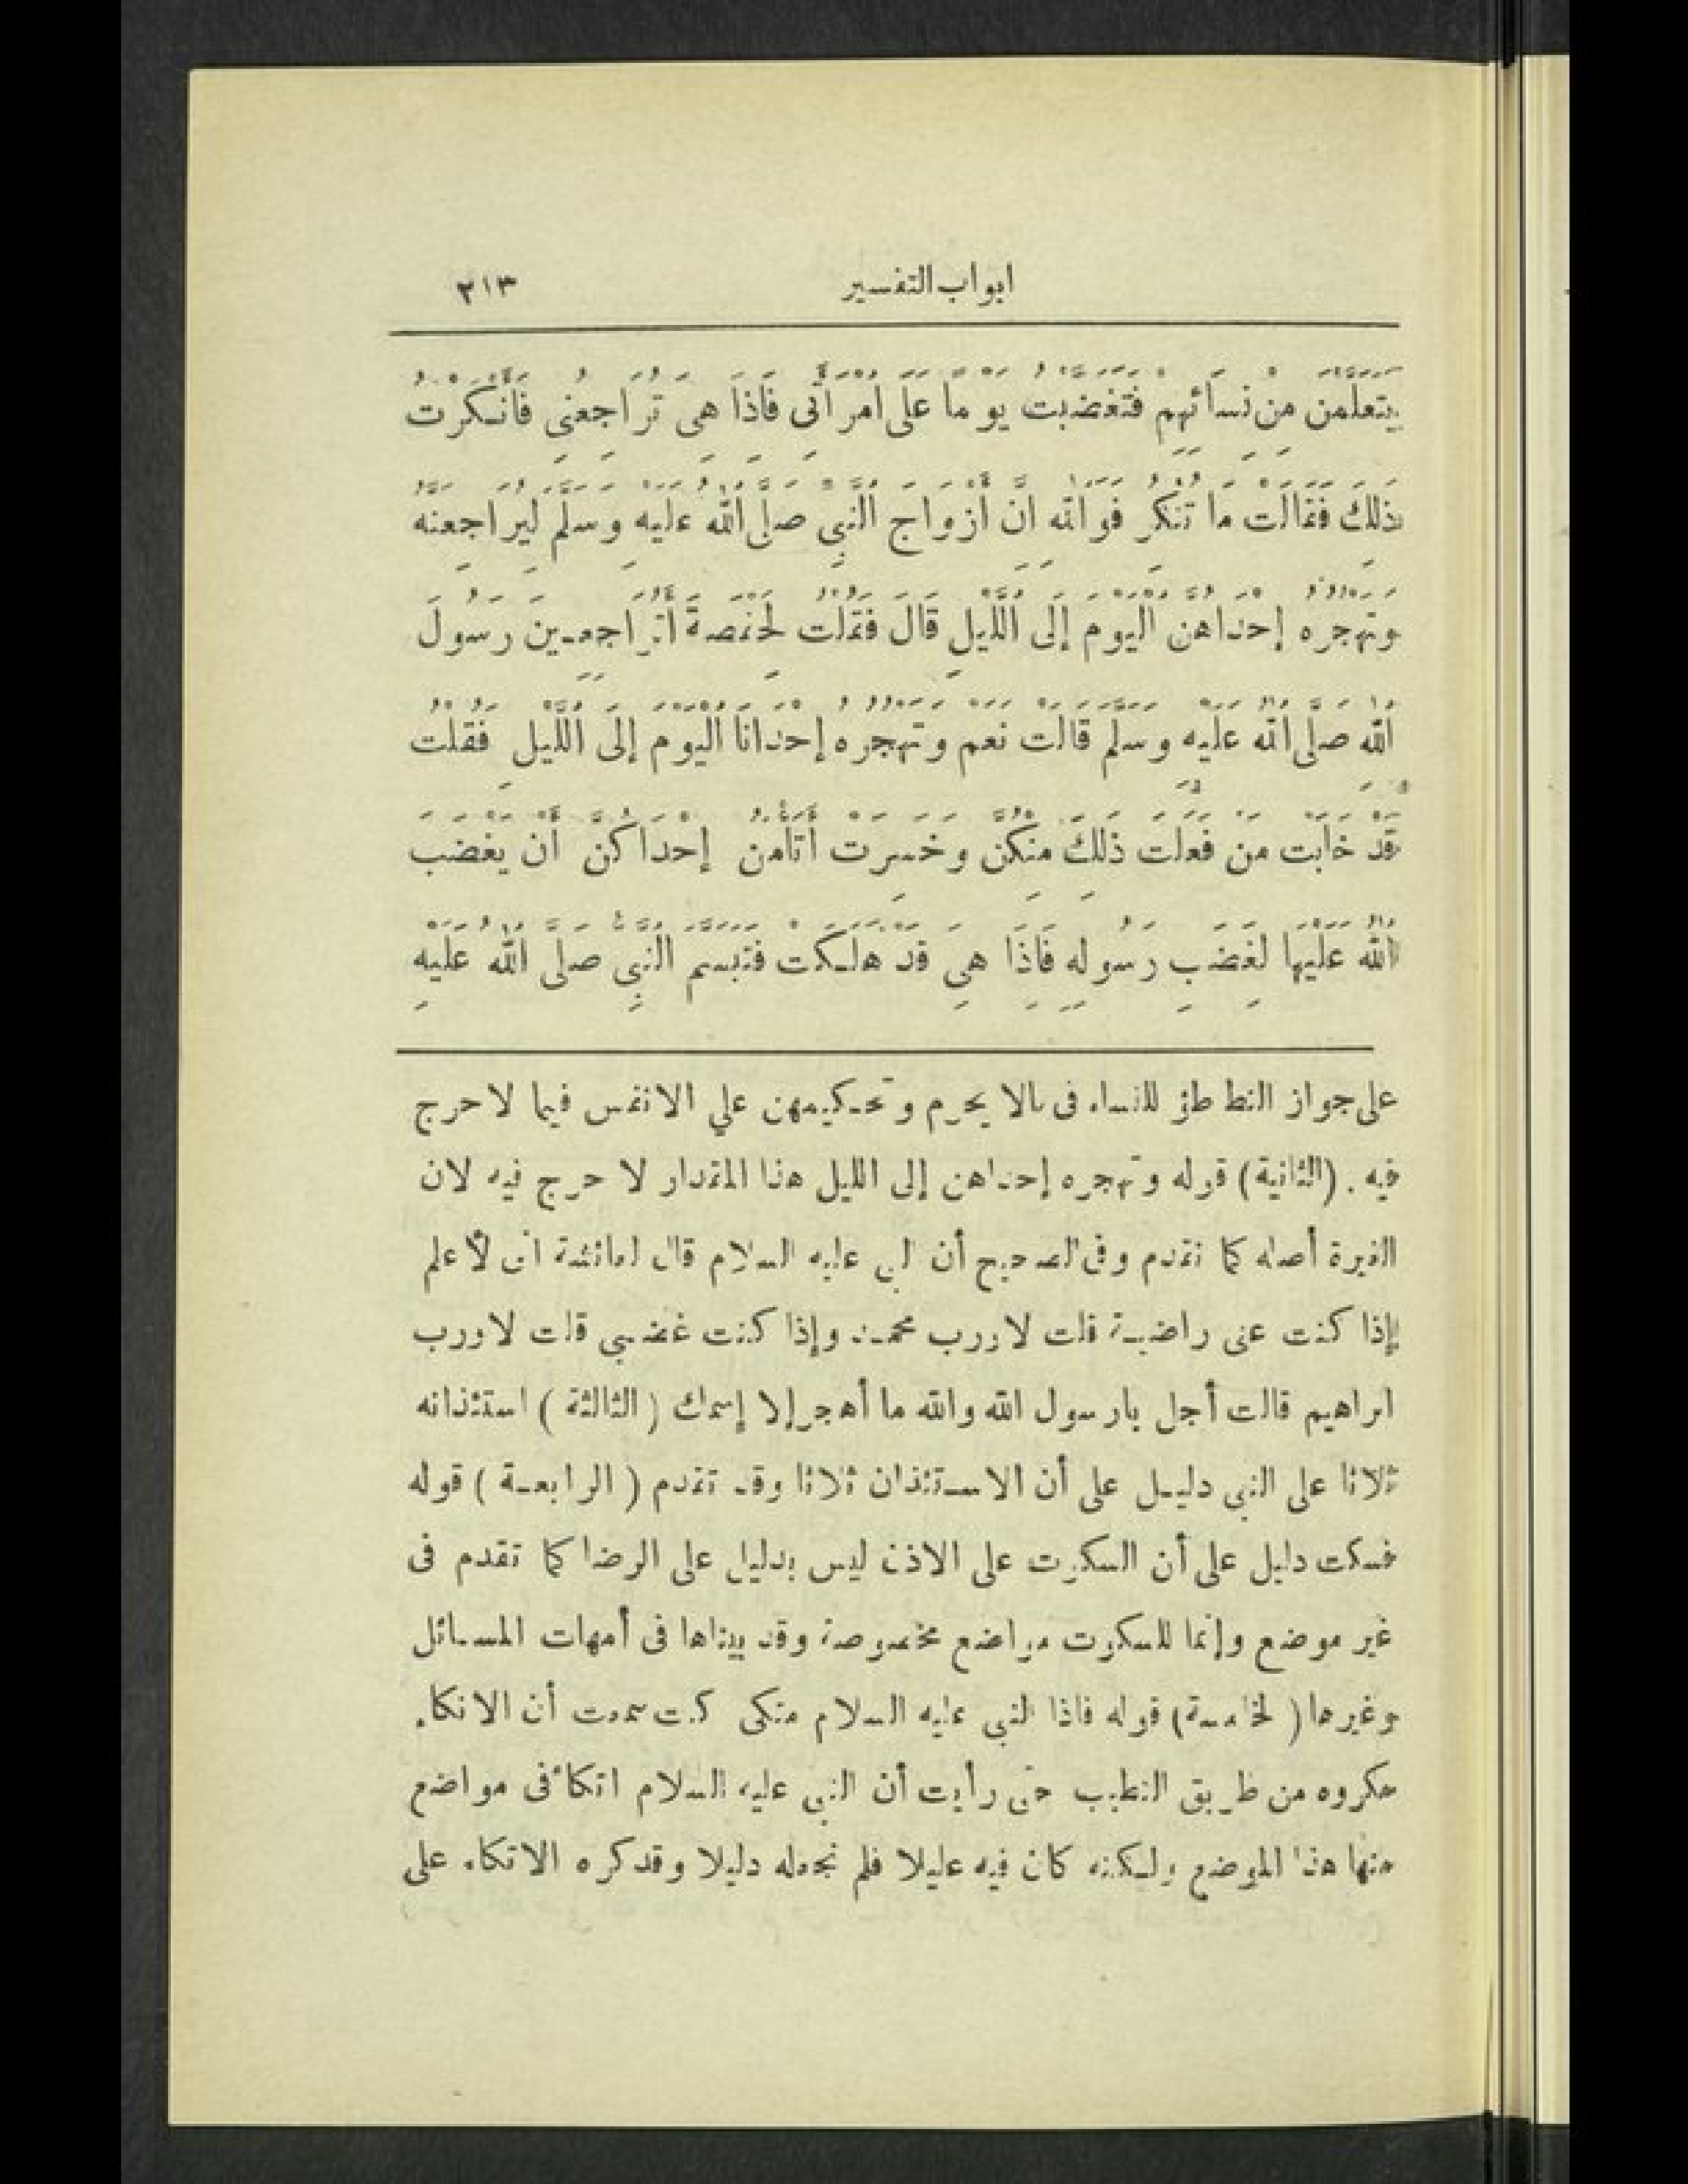 ابواب التفسير ٢١٣
يَتَعَلَّمْنَ مِنْ نِسَائِهِمْ فَتَغَضَّبْتُ يَوْمًا عَلَى امْرَأَتِي فَاذَا هِىَ تُرَاجِعُنِى فَأَنْكَرْتُ
ذَلِكَ فَقَالَتْ مَا تُنْكِرُ فَوَاللهِ إِنَّ أَزْوَاجَ النَّبِىِّ صَلَّى اللهُ عَلَيْهِ وَسَلَّمَ لَيُرَاجِعْنَهُ
وَتَهْجُرُهُ إِحْدَاهُنَّ الْيَوْمَ إِلَى اللَّيْلِ قَالَ فَقُلْتُ لِحَفْصَةَ أَتُرَاجِعِينَ رَسُولَ
اللهِ صَلَّى اللهُ عَلَيْهِ وَسَلَّمَ قَالَتْ نَعَمْ وَتَهْجُرُهُ إِحْدَانَا الْيَوْمَ إِلَى اللَّيْلِ فَقُلْتُ
قَدْ خَابَتْ مَنْ فَعَلَتْ ذَلِكَ مِنْكُنَّ وَخَسِرَتْ أَتَأْمَنُ إِحْدَاكُنَّ أَنْ يَغْضَبَ
اللهُ عَلَيْهَا لِغَضَبِ رَسُولِهِ فَاِذَا هِىَ قَدْ هَلَكَتْ فَتَبَسَّمَ النَّبِىُّ صَلَّى اللهُ عَلَيْهِ
على جواز التطاطؤ للنساء فى مالا يحرم وتحكيمهن علي الانفس فيما لا حرج
فيه . (الثانية) قوله وتهجره إحداهن إلى الليل هذا المقدار لا حرج فيه لان
الغيرة أصله كما تقدم وفى الصحيح أن النبي عليه السلام قال لعائشة انى لأعلم
إذا كنت عنى راضية قلت لا ورب محمد وإذا كنت غضبي قلت لا ورب
ابراهيم قالت أجل يارسول الله والله ما أهجر إلا إسمك ( الثالثة ) استئذانه
ثلاثا على النبى دليل على أن الاستئذان ثلاثا وقد تقدم ( الرابعة ) قوله
فسكت دليل على أن السكوت على الاذن ليس بدليل على الرضا كما تقدم فى
غير موضع وإنما للسكوت مواضع مخصوصة وقد بيناها فى أمهات المسائل
وغيرها ( الخامسة) قوله فاذا النبى عليه السلام متكى كنت سمعت أن الاتكاء
مكروه من طريق الطب حتى رأيت أن النبى عليه السلام اتكأ فى مواضع
منها هذا الموضع ولكنه كان فيه عليلا فلم نجعله دليلا وقد كره الاتكاء على